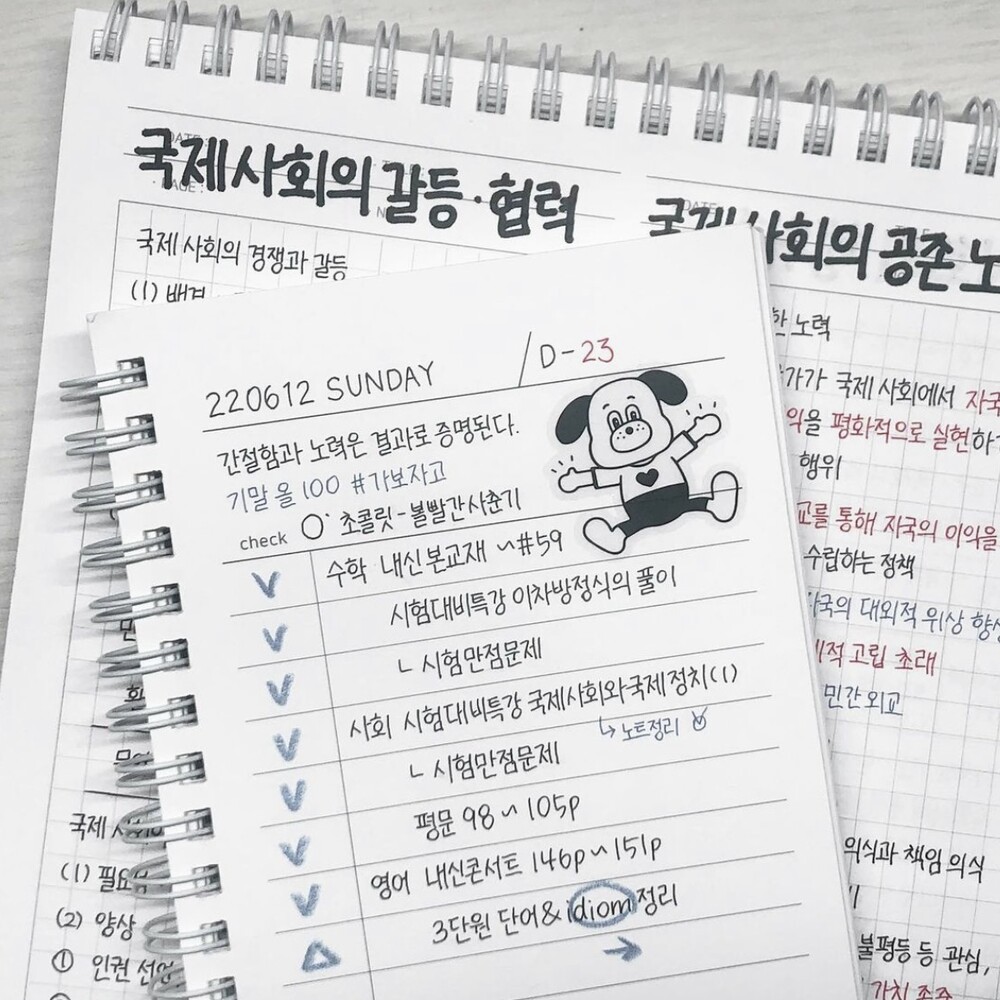 국제사회의 갈등·협력
국제 사회의 경쟁과 갈등
(1) 배경
국제사회의 공존 노
한 노력
가가 국제 사회에서 자국
익을 평화적으로 실현하
행위
교를 통해 자국의 이익을
수립하는 정책
자국의 대외적 위상 향상
적 고립 초래
민간외교
의식과 책임 의식
불평등 등 관심,
가치 존중
국제 사회
(1) 필요
(2) 양상
① 인권 선언
220612 SUNDAY / D-23
간절함과 노력은 결과로 증명된다.
기말 올100 #가보자고
check 초콜릿-볼빨간사춘기
V 수학 내신본교재 ~#59
V 시험대비특강 이차방정식의 풀이
V ㄴ시험만점문제
V 사회 시험대비특강 국제사회와국제정치(1)
↳노트정리
V ㄴ시험만점문제
V 평문 98~105p
V 영어 내신콘서트 146p~151p
△ 3단원 단어& idiom 정리
→